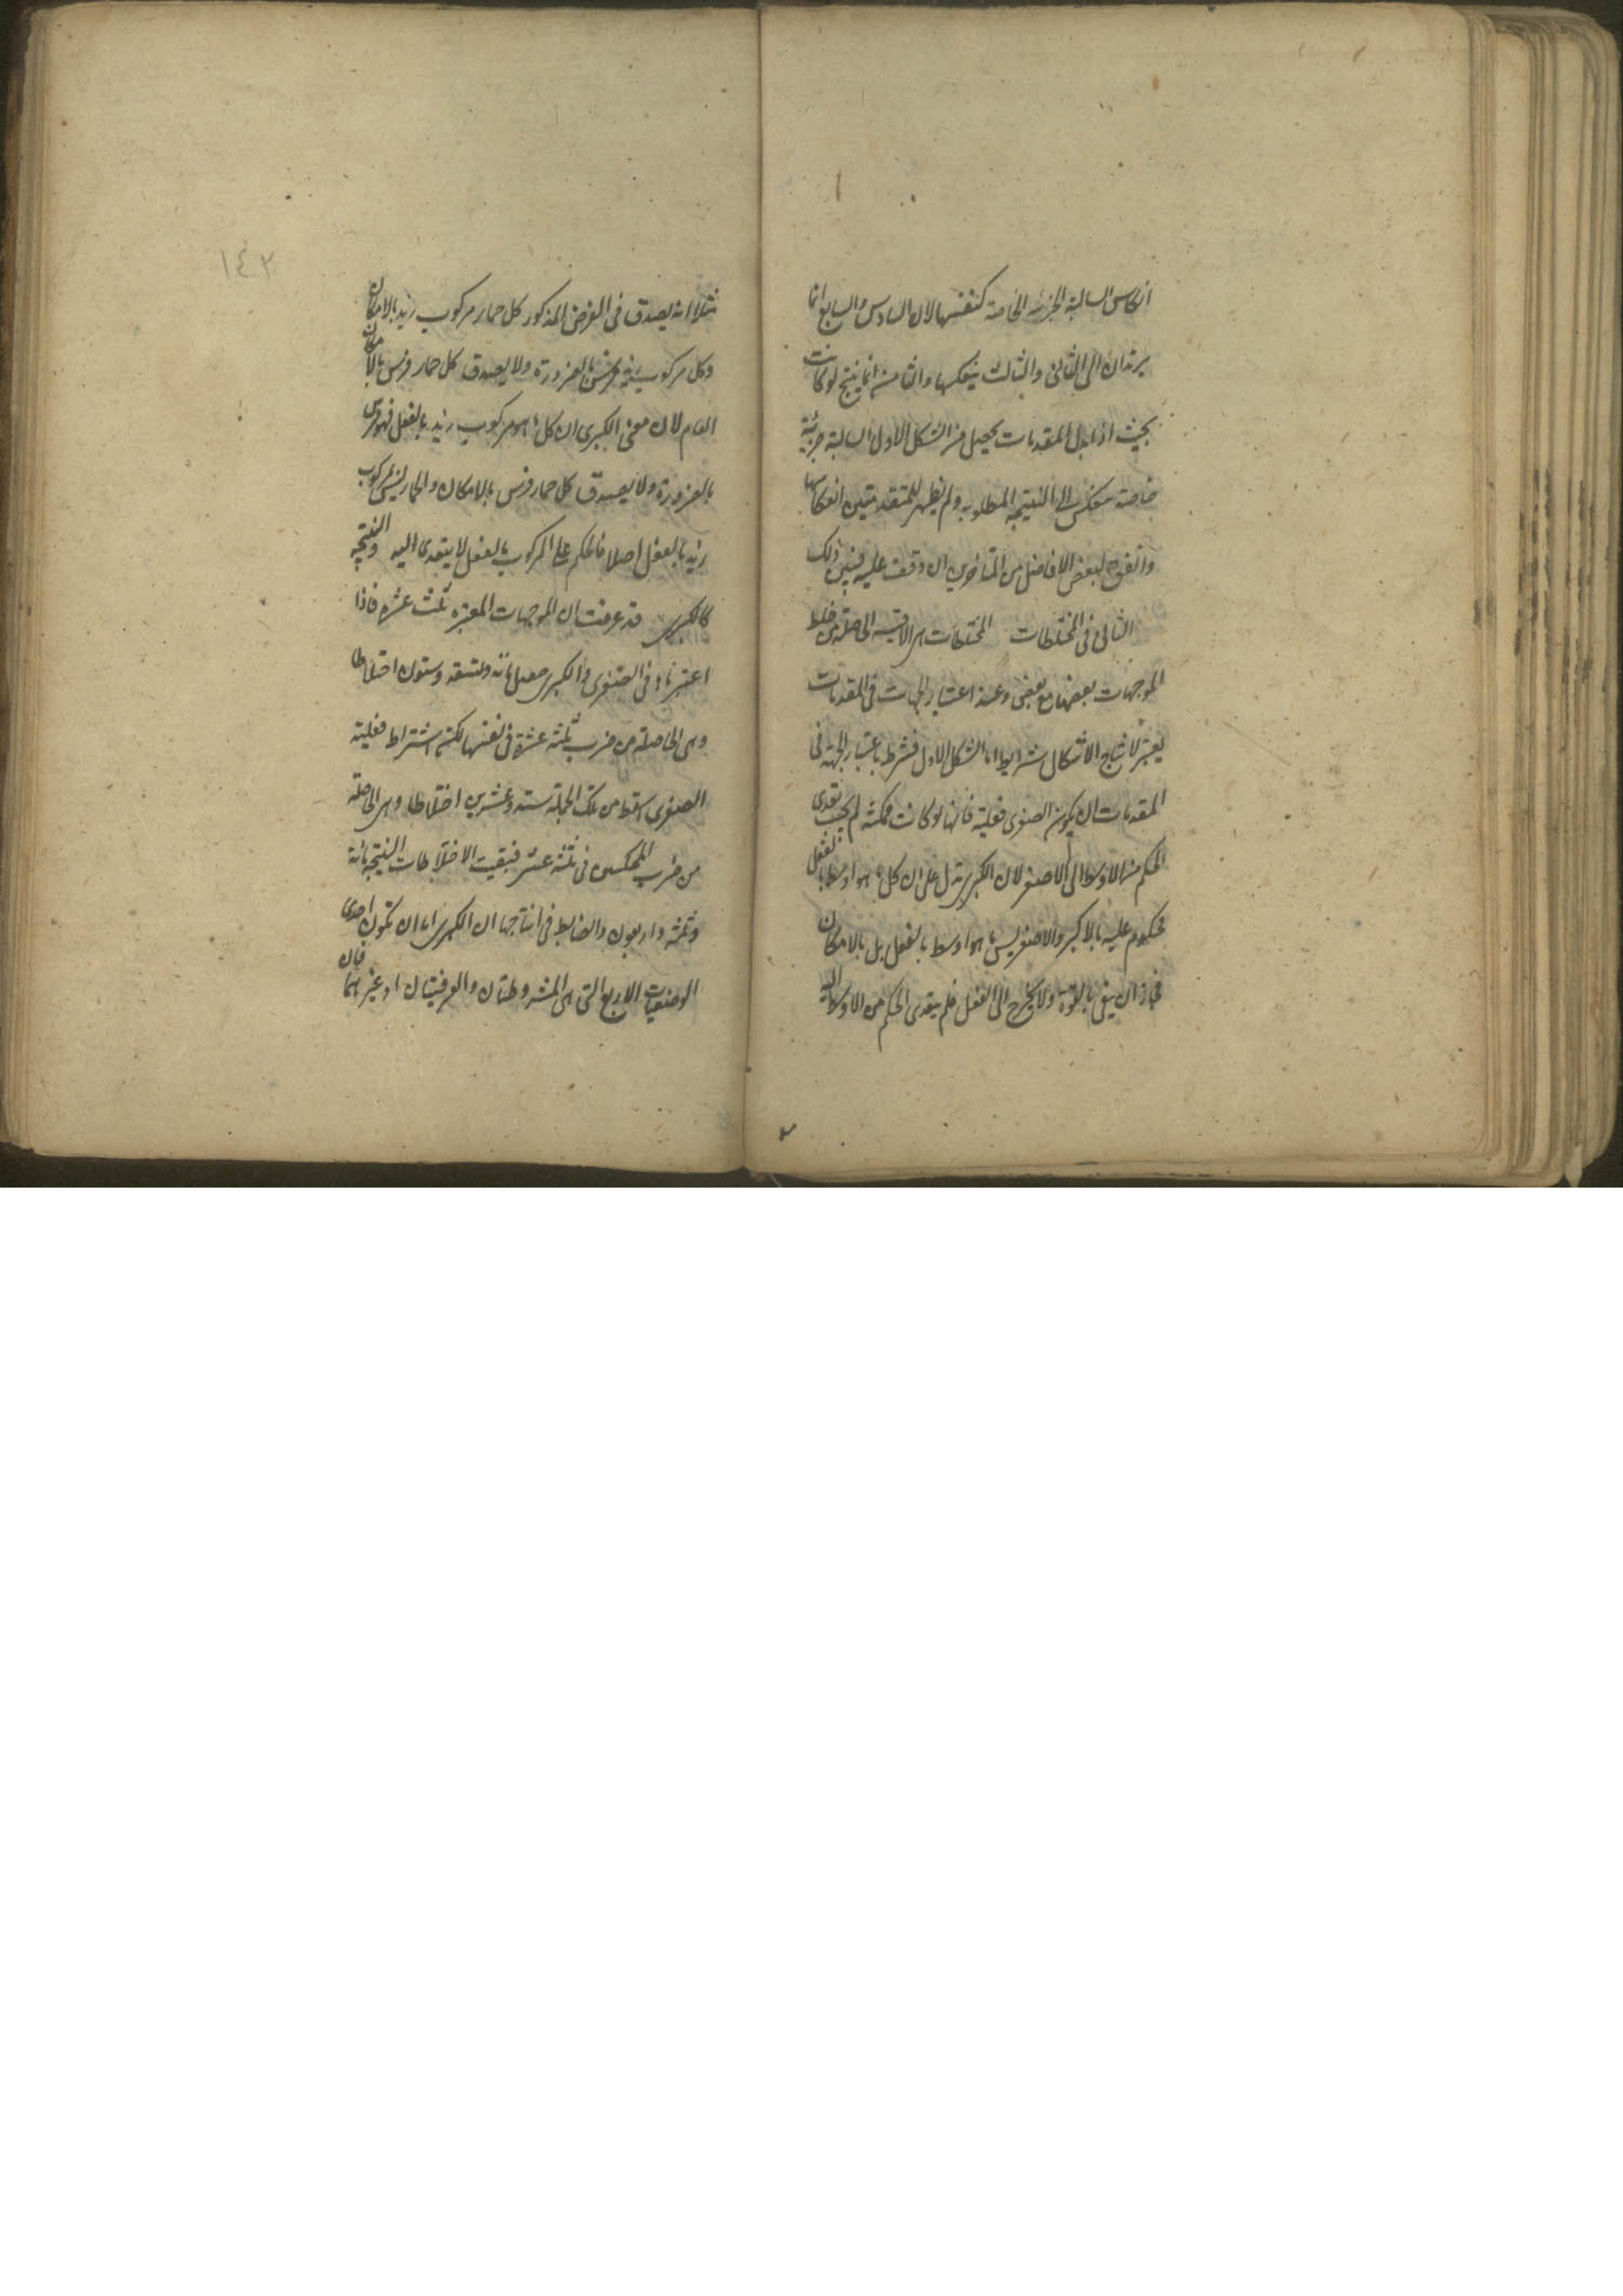 انعكاس السالبة الجزئية الخاصة كنفسها لان السادس والسابع انما
يرتدان الى الثانى والثالث بعكسها والثامن انما ينتج لو كانت
بحيث اذا بدل المقدمات يحصل من الشكل الاول سالبة جزئية
خاصة تنعكس الى النتيجة المطلوبة ولم يظهر للمتقدمين انعكاسها
واتفق لبعض الافاضل من المتاخرين ان وقف عليه فبين ذلك
الثانى فى المختلطات المختلطات هى الاقيسة الحاصلة من خلط
الموجهات بعضها مع بعض وعند اعتبار الجهات فى المقدمات
يعتبر لانتاج الاشكال شرايط اما الشكل الاول فشرطه باعتبار الجهة فى
المقدمات ان يكون الصغرى فعلية فانها لو كانت ممكنة لم يجب تعدى
الحكم من الاوسط الى الاصغر لان الكبرى تدل على ان كل ما هو اوسط بالفعل
محكوم عليه بالاكبر والاصغر ليس ما هو اوسط بالفعل بل بالامكان
فجاز ان يبقى بالقوة ولا يخرج الى الفعل فلم يتعدى الحكم من الاوسط اليه
١٤٣
مثلا انه يصدق فى الفرض المذكور كل حمار مركوب زيد بالامكان
وكل مركوب زيد فرس بالضرورة ولا يصدق كل حمار فرس بالامكان
العام لان معنى الكبرى ان كل ما هو مركوب زيد بالفعل فهو فرس
بالضرورة ولا يصدق كل حمار فرس بالامكان والحمار ليس مركوب
زيد بالفعل اصلا فالحكم على المركوب بالفعل لا يتعدى اليه والنتيجة
كالكبرى قد عرفت ان الموجهات المعتبرة ثلث عشرة فاذا
اعتبرناها فى الصغرى والكبرى حصل مائة وتسعة وستون اختلاطا
وهى الحاصلة من ضرب ثلثة عشرة فى نفسها لكن اشتراط فعلية
الصغرى اسقط من تلك الجملة ستة وعشرين اختلاطا وهى الحاصلة
من ضرب الممكنتين فى ثلثة عشر فبقيت الاختلاطات المنتجة مائة
وثلثة واربعون والضابط فى انتاجها ان الكبرى اما ان تكون احدى
الوصفيات الاربع التى هى المشروطتان والعرفيتان او غيرهما فان